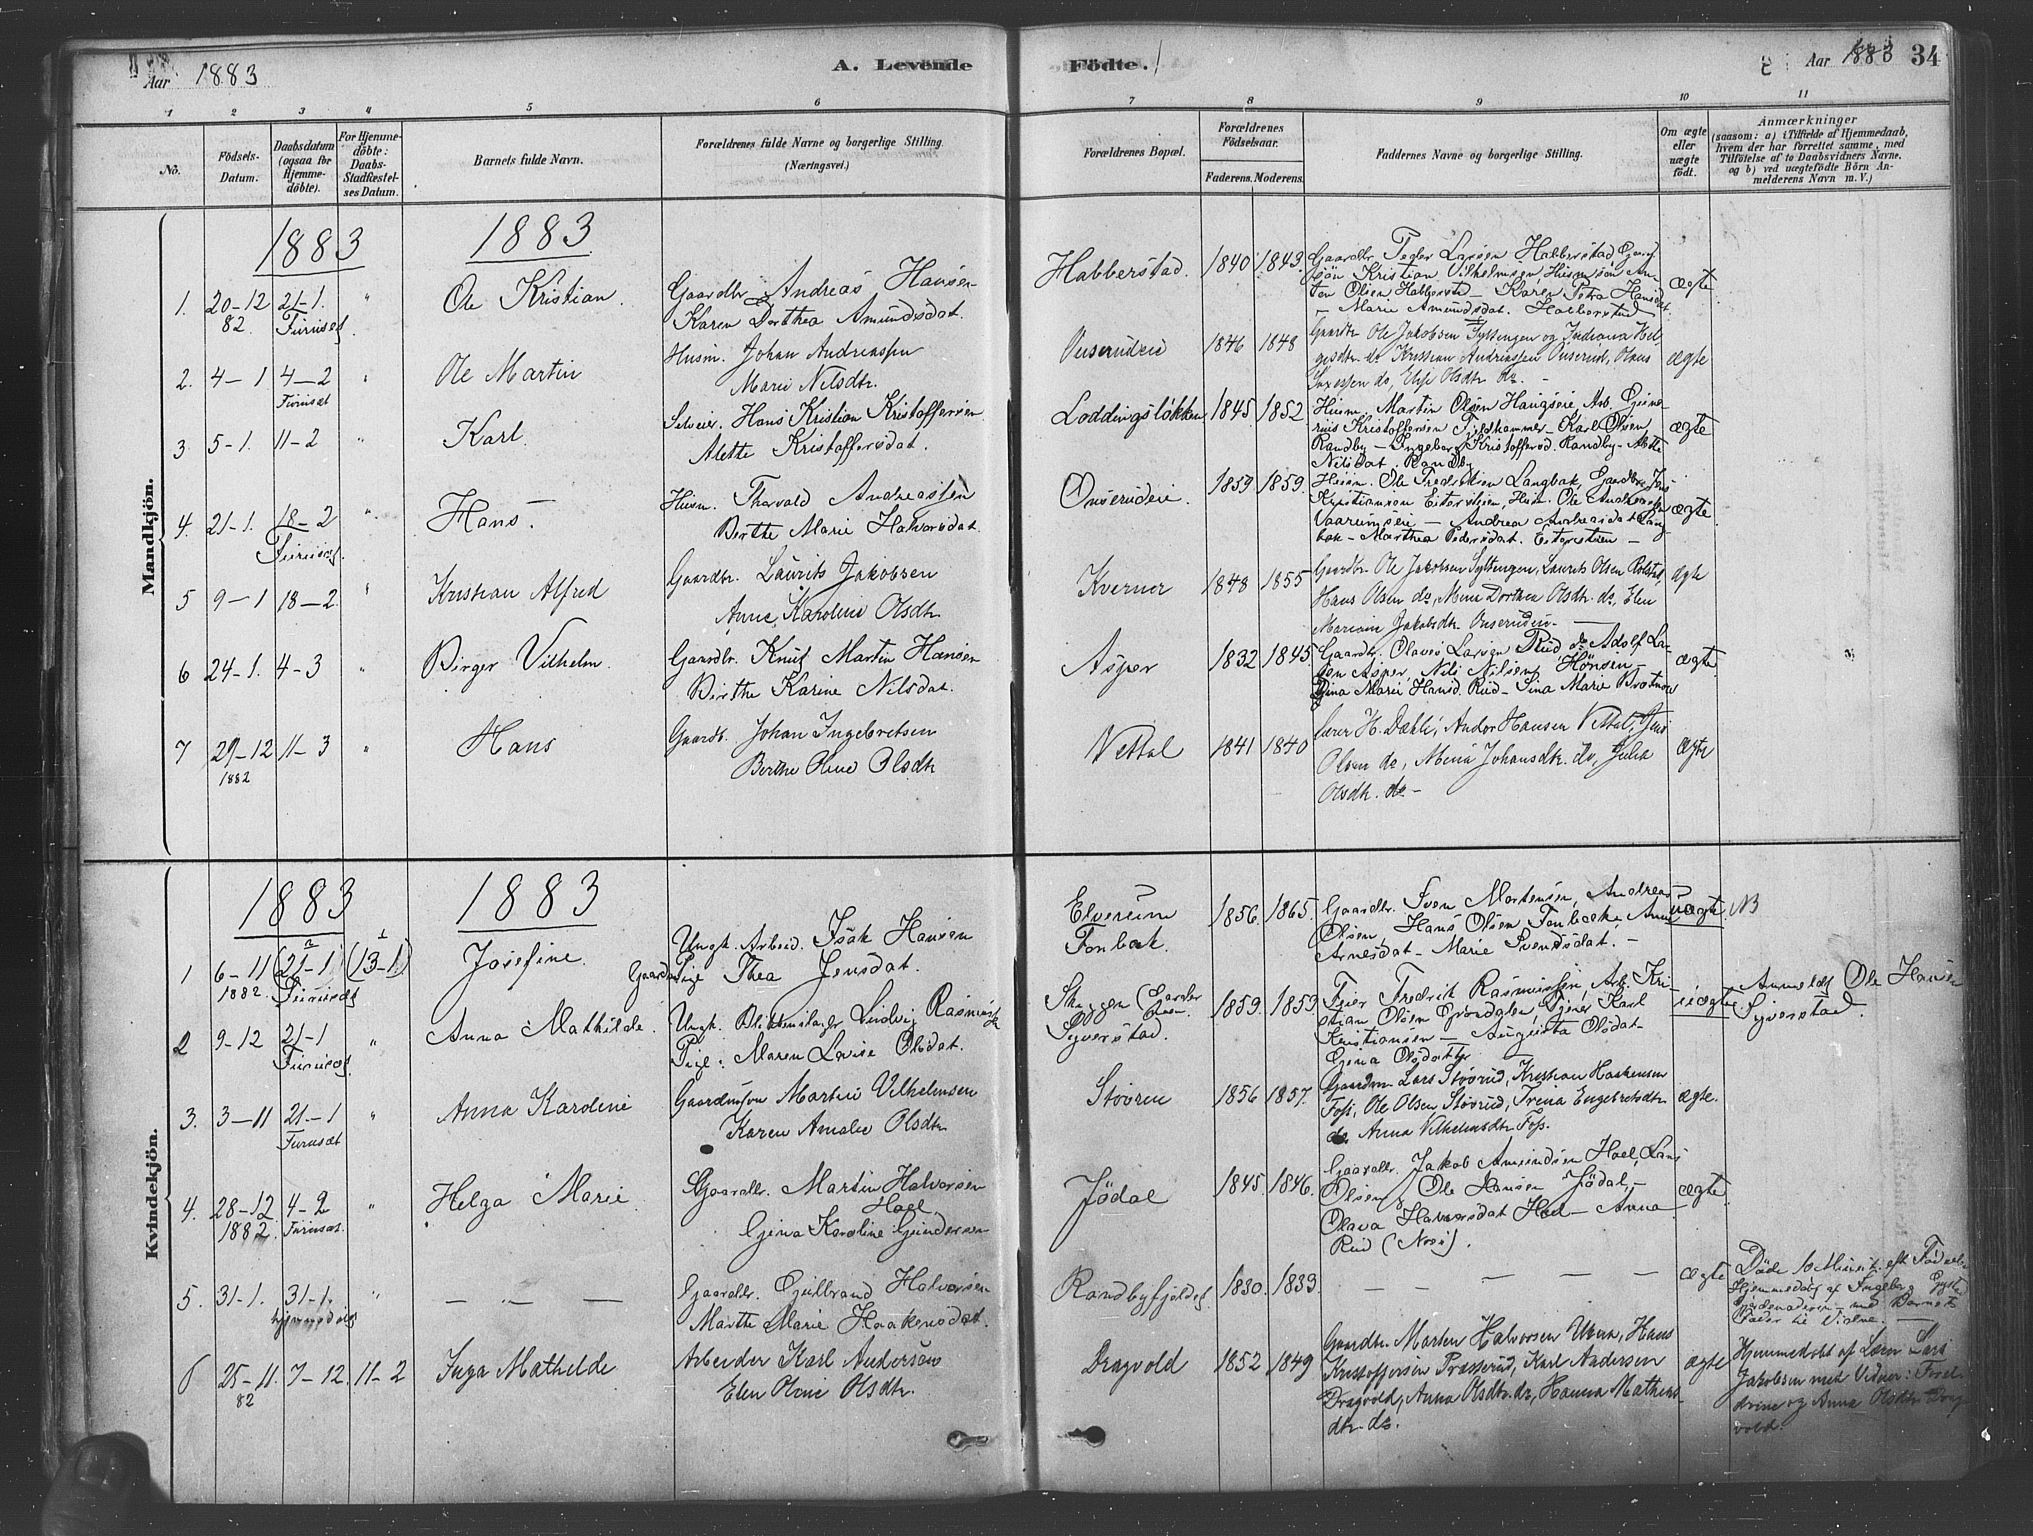 Aar 1883
A. Levende
Födte.
Aar 1883
34
1 2 3 4 5 6
7 8 9 10 11
No.
Födsels-Datum.
Daabsdatum (ogsaa for Hjemme-döbte).
For Hjemme-döbte: Daabs-Stadfæstel-ses Datum.
Barnets fulde Navn.
Forældrenes fulde Navne og borgerlige Stilling (Næringsvei.)
Forældrenes Bopæl.
Forældrenes Födselsaar.
Faderens. Moderens.
Faddernes Navne og borgerlige Stilling.
Om ægte eller uægte födt.
Anmærkninger
(saasom: a) i Tilfælde af Hjemmedaab, hvem der har forrettet samme, med Tilföielse af to Daabsvidners Navne. og b) ved uægtefödte Börn An-melderens Navn m. V.)
Mandkjön.
1883 1883
1. 20-12 82. 21-1. Furuset " Ole Kristian.
Gaardbr. Andreas Hansen
Karen Dorthea Amundsdat.
Habberstad. 1840 1843.
Gaardbr. Peder Larsen Habberstad
Kristian Vilhelmsen Husm.søn
Olsen Karen Petra Hansdat
Marie Amundsdat. Habberstad
ægte.
2. 4-1 4-2 Furuset " Ole Martin
Husm. Johan Andreassen
Marie Nilsdtr.
Onserudeie 1846 1848
Gaardbr. Ole Jakobsen Syltengen og
do Kristian Andreassen Onserud,
do, Else Olsdtr do. -
ægte
3. 5-1. 11-2 " Karl.
Selveier. Hans Kristian Kristoffersen
Alette Kristoffersdat.
Loddingsløkken 1845 1852
Husm. Martin Olsen Haugseie, Arb.
Kristoffersen Karl Olsen
Randby - Ingeborg Kristoffersd. Randby - Alette
Nilsdat. Randby
ægte
4. 21-1. 18-2 Furuset " Hans. -
Husm. Thorvald Andreassen
Berthe Marie Halvorsdat
Onserudeie. 1859 1859.
Husm. Ole Fredriksen Langbak,
Kristiansen Husm. Ole
Andrea Andreasdat
- Marthea Pedersdat.
ægte
5 9-1 18-2 " Kristian Alfred
Gaardbr. Laurits Jakobsen
Anne Karoline Olsdtr.
Kverner 1848 1855
Gaardbr. Ole Jakobsen Syltengen, Laurits Olsen Rolstad,
Hans Olsen do, Mina Dorthea Olsdtr. do, Elen
Jakobsdtr. Onserudeie. -
ægte
6 24-1. 4-3 " Birger Vilhelm.
Gaardbr. Knut Martin Hansen
Birthe Karine Nilsdat.
Asper 1832 1845
Gaardbr. Olaves Larsen Rud do Adolf La-
sen Asper, Nils Nilsen Hønsen -
Gina Marie Hansd. Rud - Tina Marie
ægte.
7 29-12 1882 11-3 " Hans
Gaardb. Johan Ingebretsen
Berthe Oline Olsdtr
Vettal 1841 1840
Lærer H. Dæhli, Andor Hansen Vettal,
Olsen do, Mina Johansdtr. do, Julia
Olsdtr. do. -
ægte
Kvindekjön.
1883 1883
1 6-11 1882. (21-1) Furuset (13-1) Josefine.
Ungk. Arbeid. Isak Hansen
Pige Thea Jensdat.
Elverum
Fonbæk 1856. 1865.
Gaardbr. Sven Mortensen, Andreas
Olsen, Hans Olsen Fonbæk, Anne
Arnesdat - Marie Svendsdat. -
uægte. NB
2 9-12 21-1 Furuset " Anna Mathilde.
Ungk. Blikkenslager Ludvig Rasmussen
Pige: Maren Lovise Olsdat.
Skeggen
Syverstad. 1859. 1853
Fredrik Rasmussen, Arb. Kri-
stian Olsen Tjener Karl
Kristiansen - Augusta Olsdat -
Gina Olsdatter
uægte
Anmeldt Ole Hansen
Syverstad.
3. 3-11 21-1 Furuset " Anna Karoline
Gaardmsøn Martin Vilhelmsen
Karen Amalie Olsdtr
Støvren 1856 1857.
Gaardm. Lars Støvrud, Kristian Haakensen
Foss, Ole Olsen Støvrud, Trina Engebretsdtr.
do. Anna Vilhelmsdtr. Foss.
ægte.
4. 28-12. 1882. 4-2 Furuset. " Helga Marie
Gaardbr. Martin Halvorsen
Hoel
Gina Karoline Gundersen
Jödal 1845. 1846.
Gaardbr. Jakob Amundsen Hoel, Lars
Olsen, Ole Hansen Jødal, -
Olava Halvorsdat Hoel - Anna
Rud
ægte.
5. 31-1. 31-1. hjemmedöbt " - " - -
Gaardbr. Gulbrand Halvorsen
Marthe Marie Haakensdat.
Randbyfjeldet 1830. 1839. - - - - - -
ægte
Døde 10 Minut. eft Fødselen
Hjemmedøbt af Ingeborg
med Barnets
Fader til Vidne. -
6 25-11. 82 7-12. 11-2 Inga Mathilde
Arbeider Karl Andersen
Elen Oline Olsdtr.
Dragvold 1852 1849
Gaardbr. Morten Halvorsen Hans
Kristoffersen Karl Andersen
Dragvold, Anna Olsdtr. do, Hanna Mathis-
dtr. do.
ægte
Hjemmedøbt af Lærer Lars
Jakobsen med Vidner:
og Anna Olsdtr. Drag-
vold.